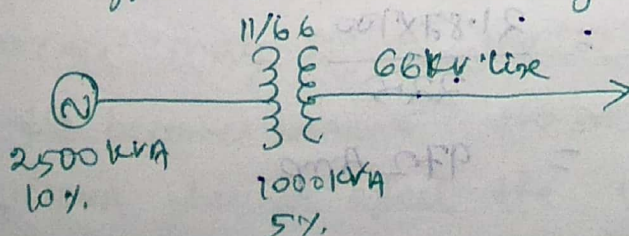 11/66
66kv line
2500 KVA
10%.
1000KVA
5%.